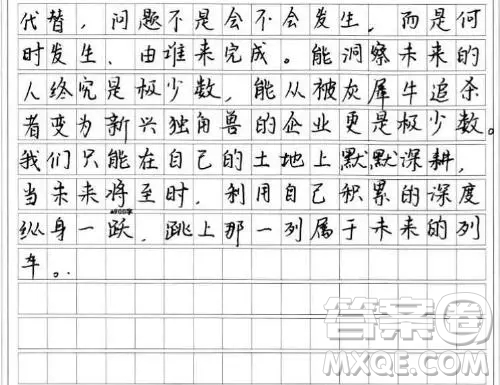 代替，问题不是会不会发生，而是何
时发生、由谁来完成。能洞察未来的
人终究是极少数，能从被灰犀牛追杀
者变为新兴独角兽的企业更是极少数。
我们只能在自己的土地上默默深耕，
当未来将至时，利用自己积累的深度
纵身一跃，跳上那一列属于未来的列
车。
答案圈
MXQE.COM